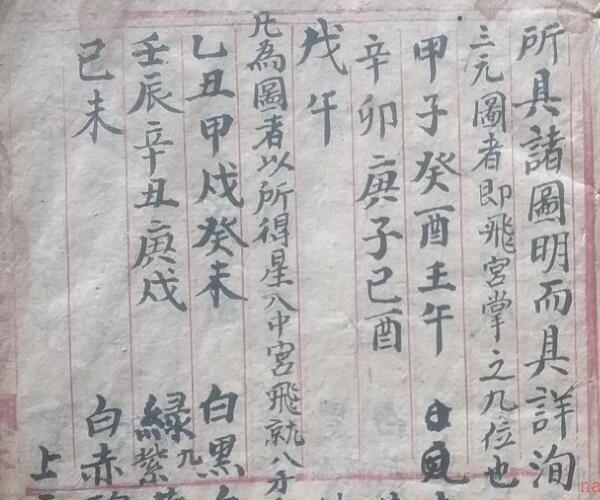 所具諸圖明而具詳洵
三元圖者即飛宮掌之九位也
甲子癸酉壬午
辛卯庚子己酉
戊午
凡為圖者以所得星入中宮飛就八方
乙丑甲戌癸未 白黑
壬辰辛丑庚戌 綠紫九
己未 白赤
上